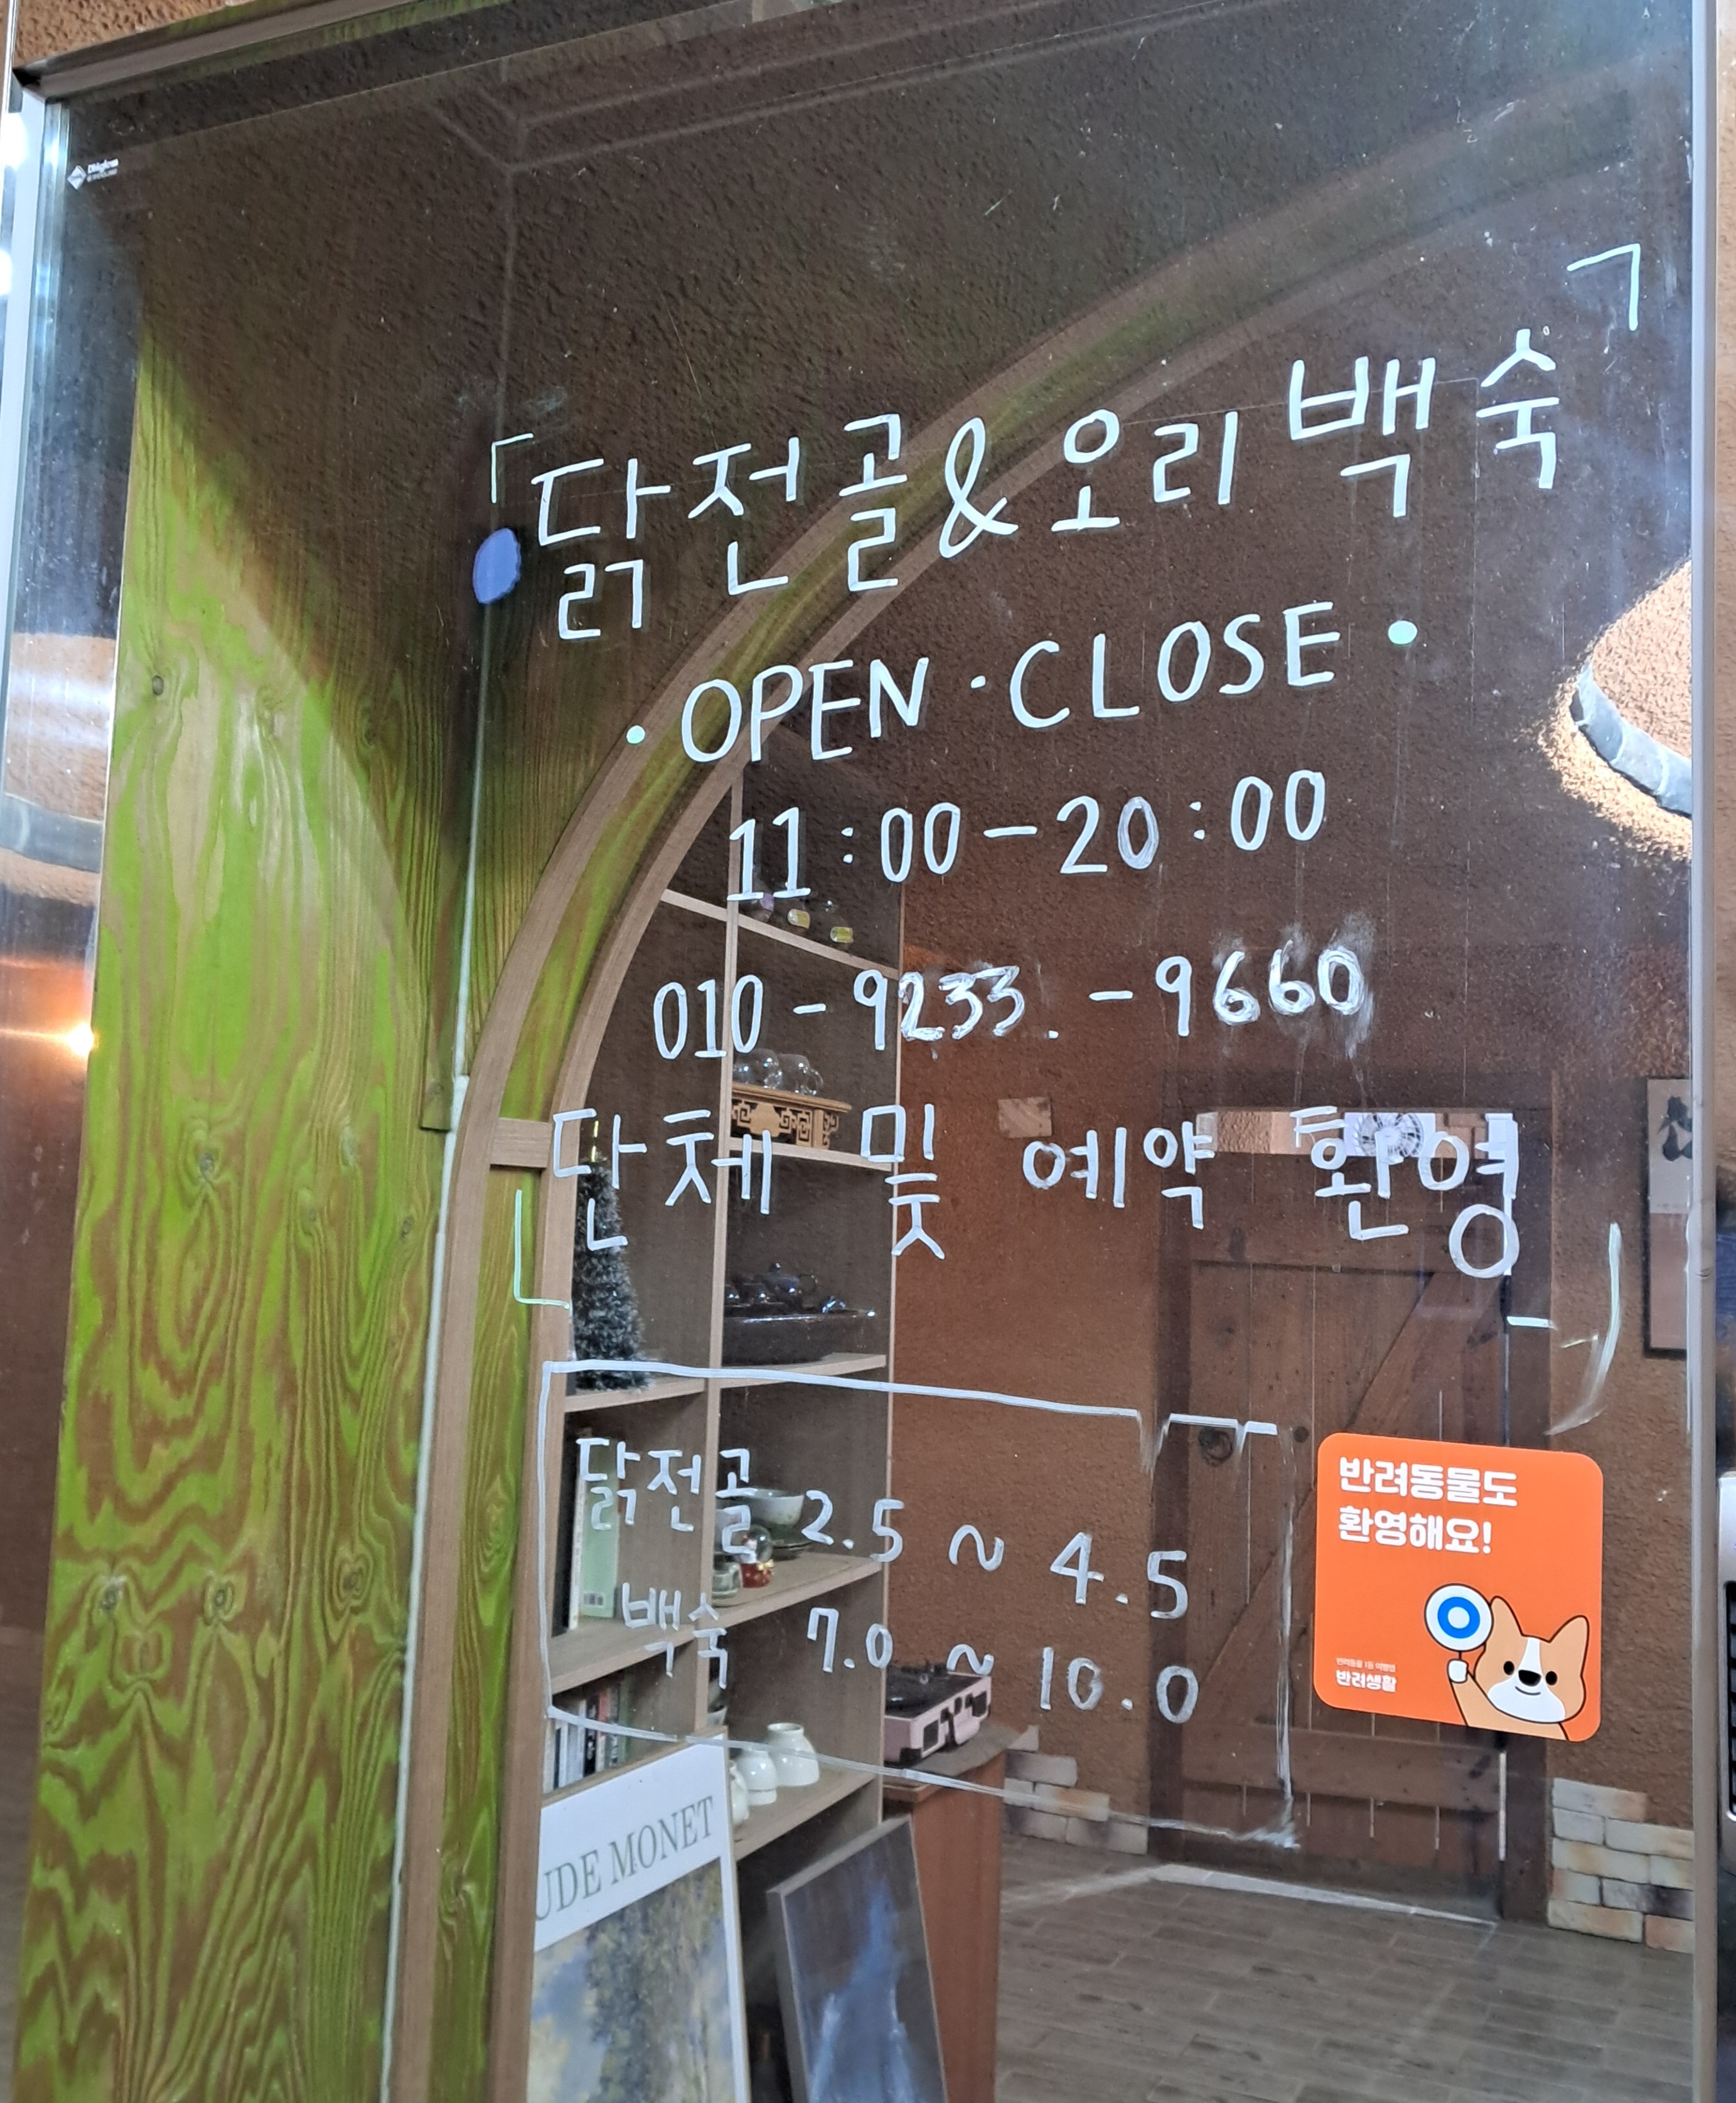 「닭전골&오리백숙ㄱ
· OPEN · CLOSE ·
11:00-20:00
010-9233.-9660
단체 및 예약 환영
닭전골 2.5 ~ 4.5
백숙 7.0 ~ 10.0
반려동물도
환영해요!
반려생활
UDE MONET